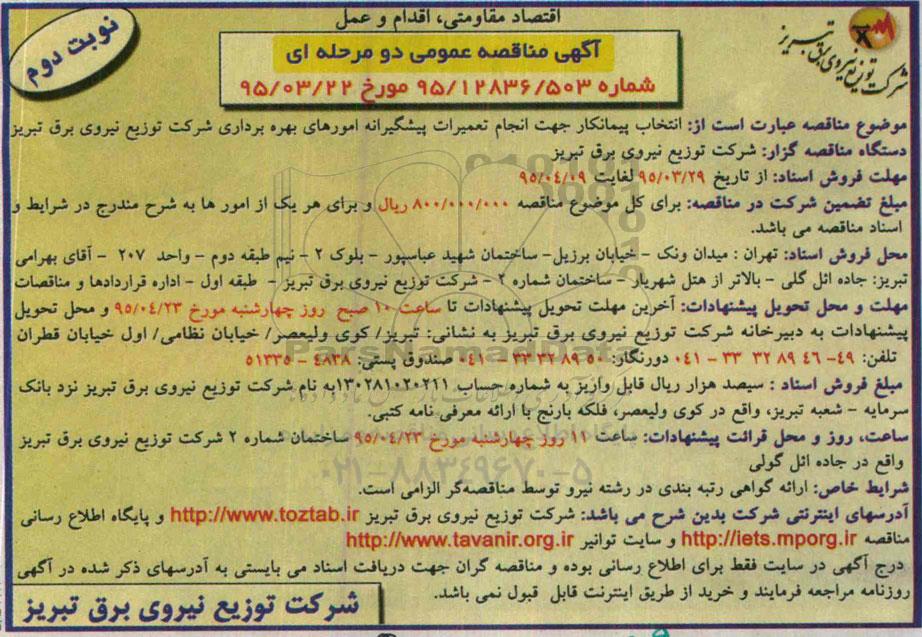 اقتصاد مقاومتی، اقدام و عمل
نوبت دوم
شرکت توزیع نیروی برق تبریز
آگهی مناقصه عمومی دو مرحله ای
شماره ۹۵/۱۲۸۳۶/۵۰۳ مورخ ۹۵/۰۳/۲۲
موضوع مناقصه عبارت است از: انتخاب پیمانکار جهت انجام تعمیرات پیشگیرانه امورهای بهره برداری شرکت توزیع نیروی برق تبریز
دستگاه مناقصه گزار: شرکت توزیع نیروی برق تبریز
مهلت فروش اسناد: از تاریخ ۹۵/۰۳/۲۹ لغایت ۹۵/۰۴/۰۹
مبلغ تضمین شرکت در مناقصه: برای کل موضوع مناقصه ۸۰۰/۰۰۰/۰۰۰ ریال و برای هر یک از امور ها به شرح مندرج در شرایط و
اسناد مناقصه می باشد.
محل فروش اسناد: تهران : میدان ونک - خیابان برزیل- ساختمان شهید عباسپور - بلوک ۲ - نیم طبقه دوم - واحد ۲۰۷ - آقای بهرامی
تبریز: جاده ائل گلی - بالاتر از هتل شهریار - ساختمان شماره ۲ - شرکت توزیع نیروی برق تبریز - طبقه اول - اداره قراردادها و مناقصات
مهلت و محل تحویل پیشنهادات: آخرین مهلت تحویل پیشنهادات تا ساعت ۱۰ صبح روز چهارشنبه مورخ ۹۵/۰۴/۲۳ و محل تحویل
پیشنهادات به دبیرخانه شرکت توزیع نیروی برق تبریز به نشانی: تبریز/ کوی ولیعصر/ خیابان نظامی/ اول خیابان قطران
تلفن: ۴۹- ۴۶ ۸۹ ۳۲ ۳۳ - ۰۴۱ دورنگار: ۵۰ ۸۹ ۳۲ ۳۳ - ۰۴۱ صندوق پستی: ۴۸۳۸ - ۵۱۳۳۵
مبلغ فروش اسناد : سیصد هزار ریال قابل واریز به شماره حساب ۱۳۰۲۸۱۰۲۰۲۱۱به نام شرکت توزیع نیروی برق تبریز نزد بانک
سرمایه - شعبه تبریز، واقع در کوی ولیعصر، فلکه بارنج با ارائه معرفی نامه کتبی.
ساعت، روز و محل قرائت پیشنهادات: ساعت ۱۱ روز چهارشنبه مورخ ۹۵/۰۴/۲۳ ساختمان شماره ۲ شرکت توزیع نیروی برق تبریز
واقع در جاده ائل گولی
شرایط خاص: ارائه گواهی رتبه بندی در رشته نیرو توسط مناقصه‌گر الزامی است.
آدرسهای اینترنتی شرکت بدین شرح می باشد: شرکت توزیع نیروی برق تبریز http://www.toztab.ir و پایگاه اطلاع رسانی
مناقصه http://iets.mporg.ir و سایت توانیر http://www.tavanir.org.ir
درج آگهی در سایت فقط برای اطلاع رسانی بوده و مناقصه گران جهت دریافت اسناد می بایستی به آدرسهای ذکر شده در آگهی
روزنامه مراجعه فرمایند و خرید از طریق اینترنت قابل قبول نمی باشد.
شرکت توزیع نیروی برق تبریز
ParsNamadData
۰۲۱-۸۸۳۴۹۶۷۰-۵